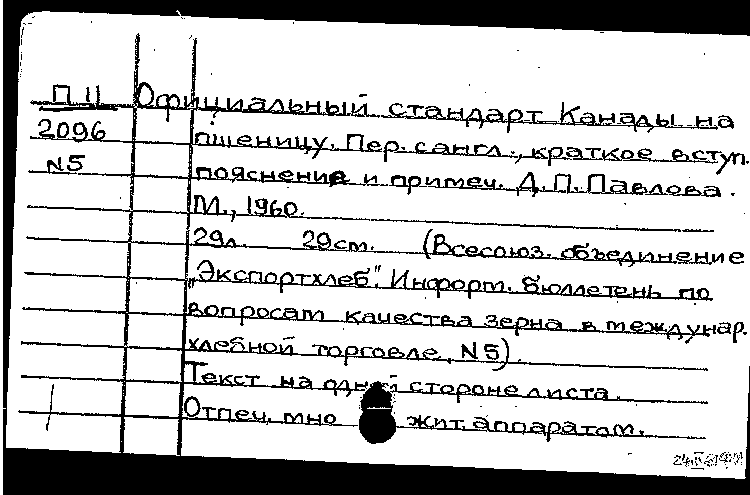 П 11 Официальный стандарт Канады на
2096 пшеницу. Пер. с англ., краткое вступ.
N5 пояснение и примеч. Д.П. Павлова.
М., 1960.
29л. 29см. (Всесоюз. объединение
„Экспортхлеб". Информ. бюллетень по
вопросам качества зерна в междунар.
хлебной торговле, N5).
Текст на одной стороне листа.
Отпеч. мно жит. аппаратом.